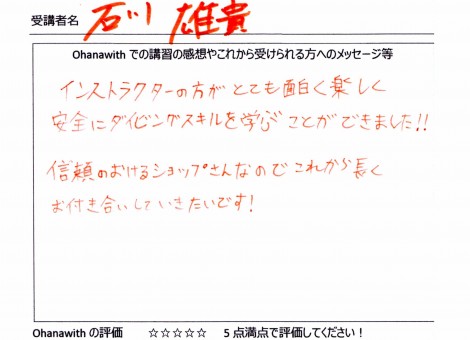 受講者名 石川 雄貴
Ohanawith での講習の感想やこれから受けられる方へのメッセージ等
インストラクターの方がとても面白く楽しく
安全にダイビングスキルを学ぶことができました!!
信頼のおけるショップさんなのでこれから長く
お付き合いしていきたいです!
Ohanawith の評価 ☆☆☆☆☆ 5 点満点で評価してください!